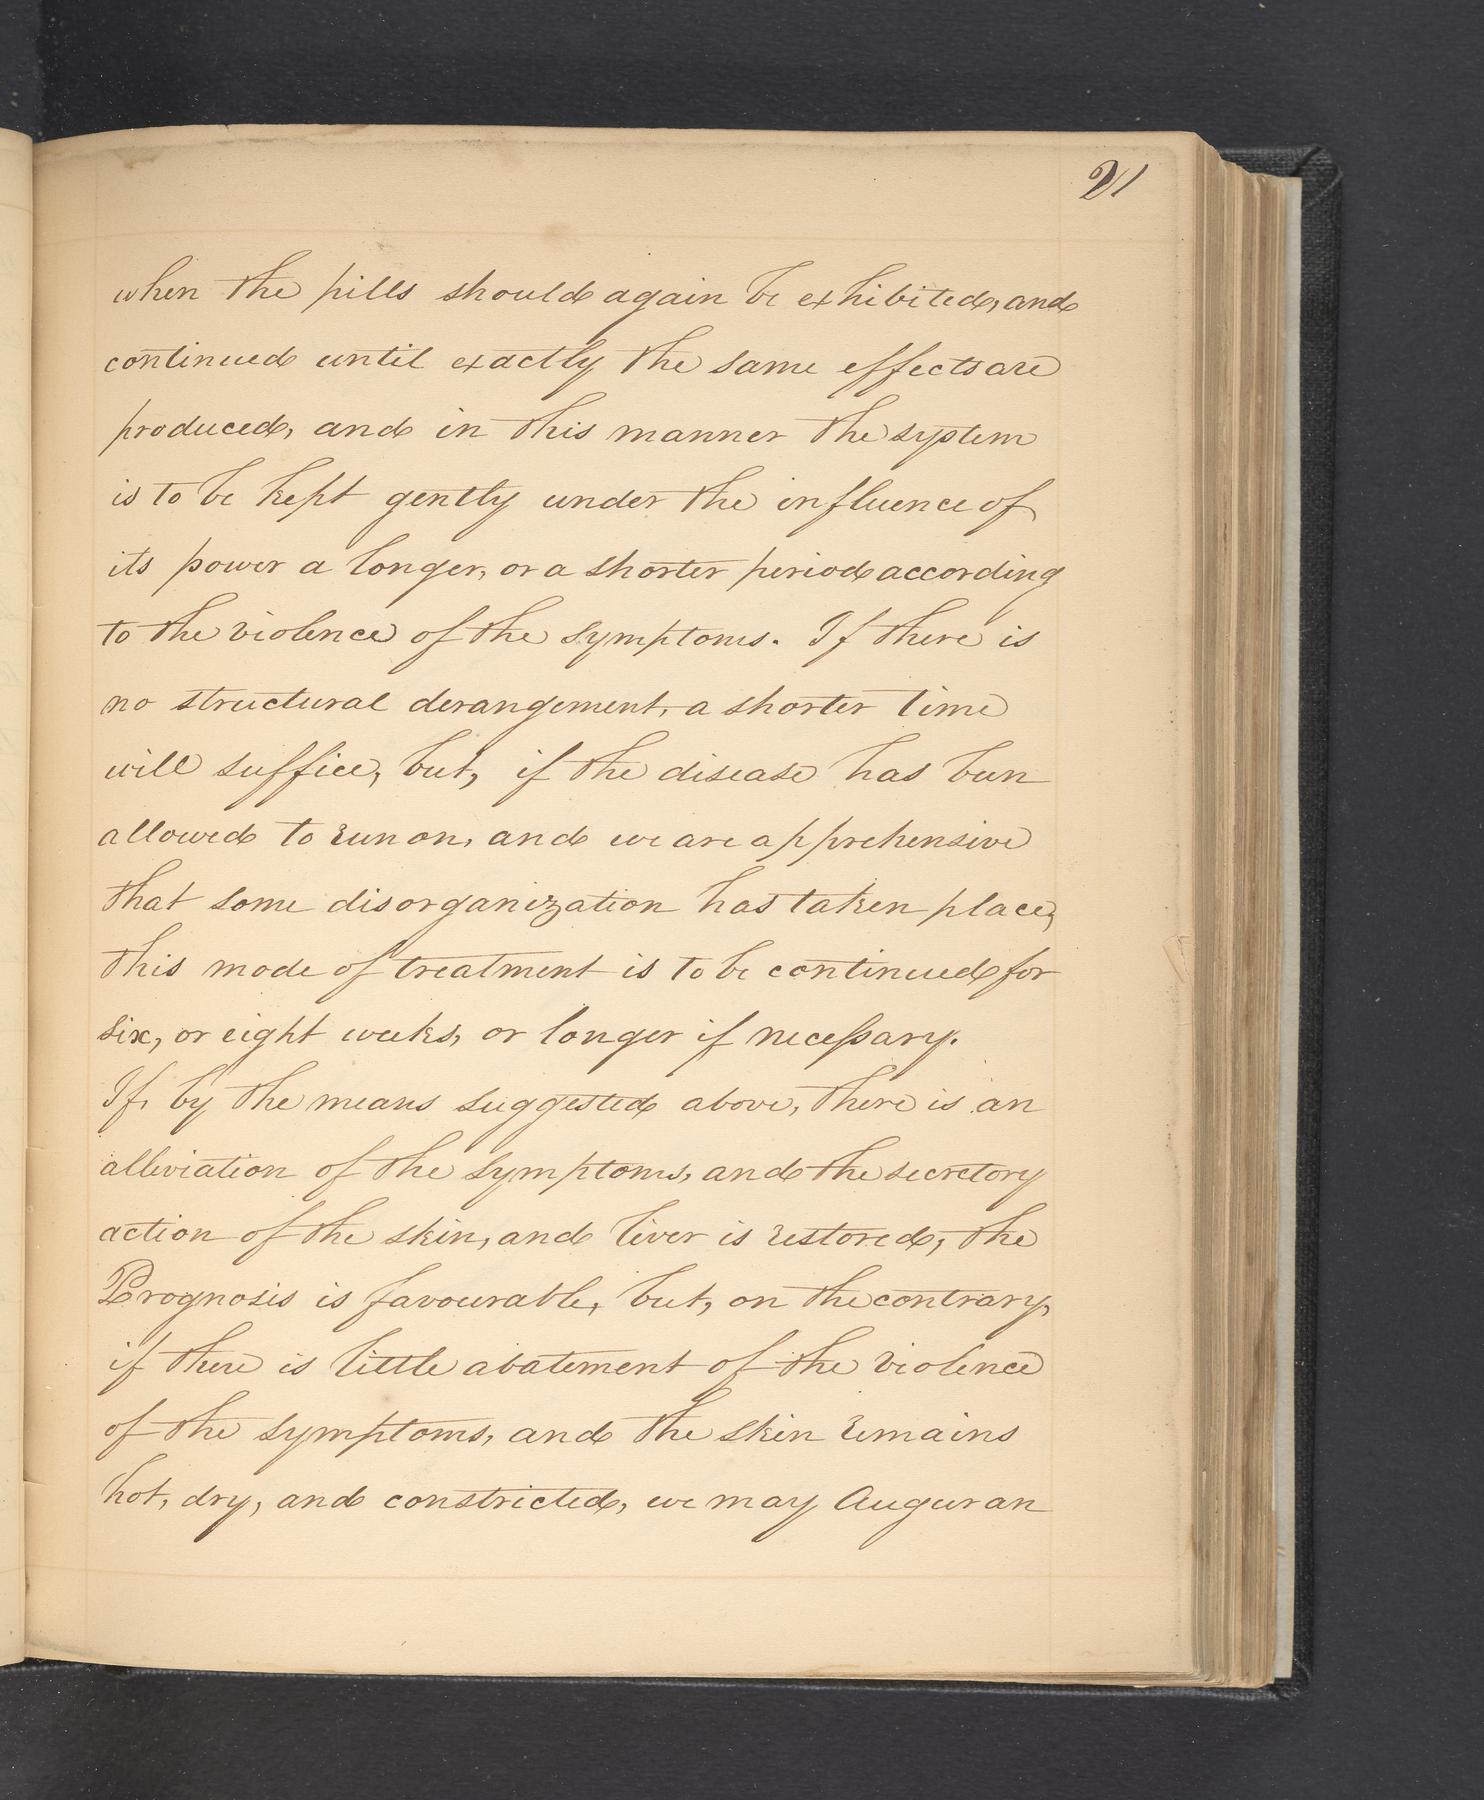 21
when the pills should again be exhibited, and
continued until exactly the same effects are
produced, and in this manner the system
is to be kept gently under the influence of
its power a longer, or a shorter period according
to the violence of the symptoms. If there is
no structural derangement, a shorter time
will suffice, but, if the disease has been
allowed to run on, and we are apprehensive
that some disorganization has taken place,
this mode of treatment is to be continued for
six, or eight weeks, or longer if necessary.
If, by the means suggested above, there is an
alleviation of the symptoms, and the secretory
action of the skin, and liver is restored, the
Prognosis is favourable, but, on the contrary,
if there is little abatement of the violence
of the symptoms, and the skin remains
hot, dry, and constricted, we may augur an